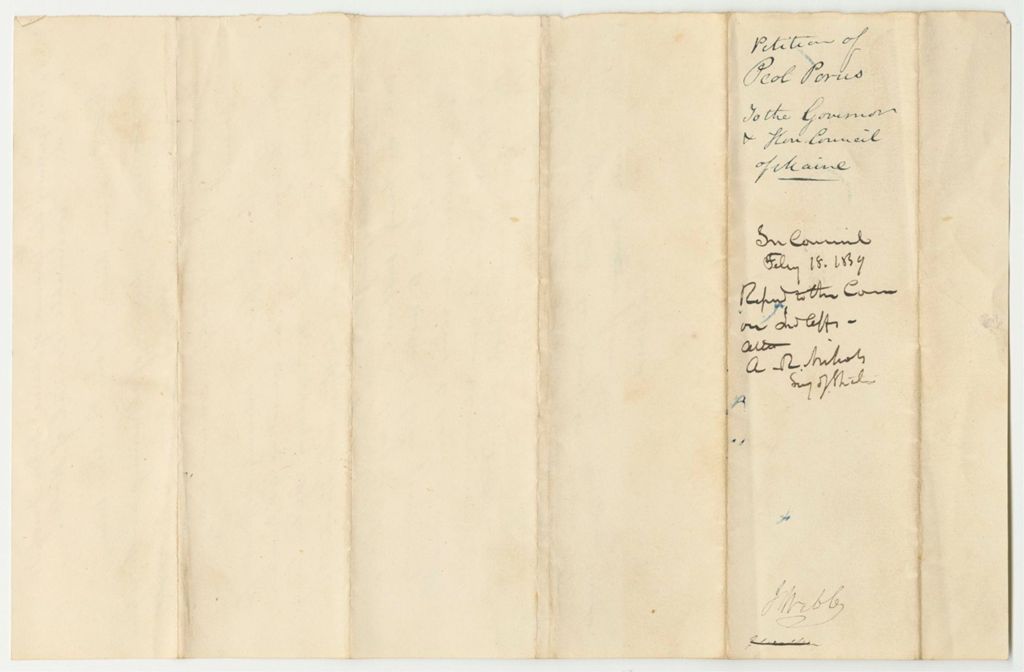 Petition of
Peol Porus
To the Governor
& Hon Council
of Maine
In Council
Feby 18. 1839
Refd to the Com
on Ind Affs -
Attest
A. R. Nichols
Secy of State
J Webb